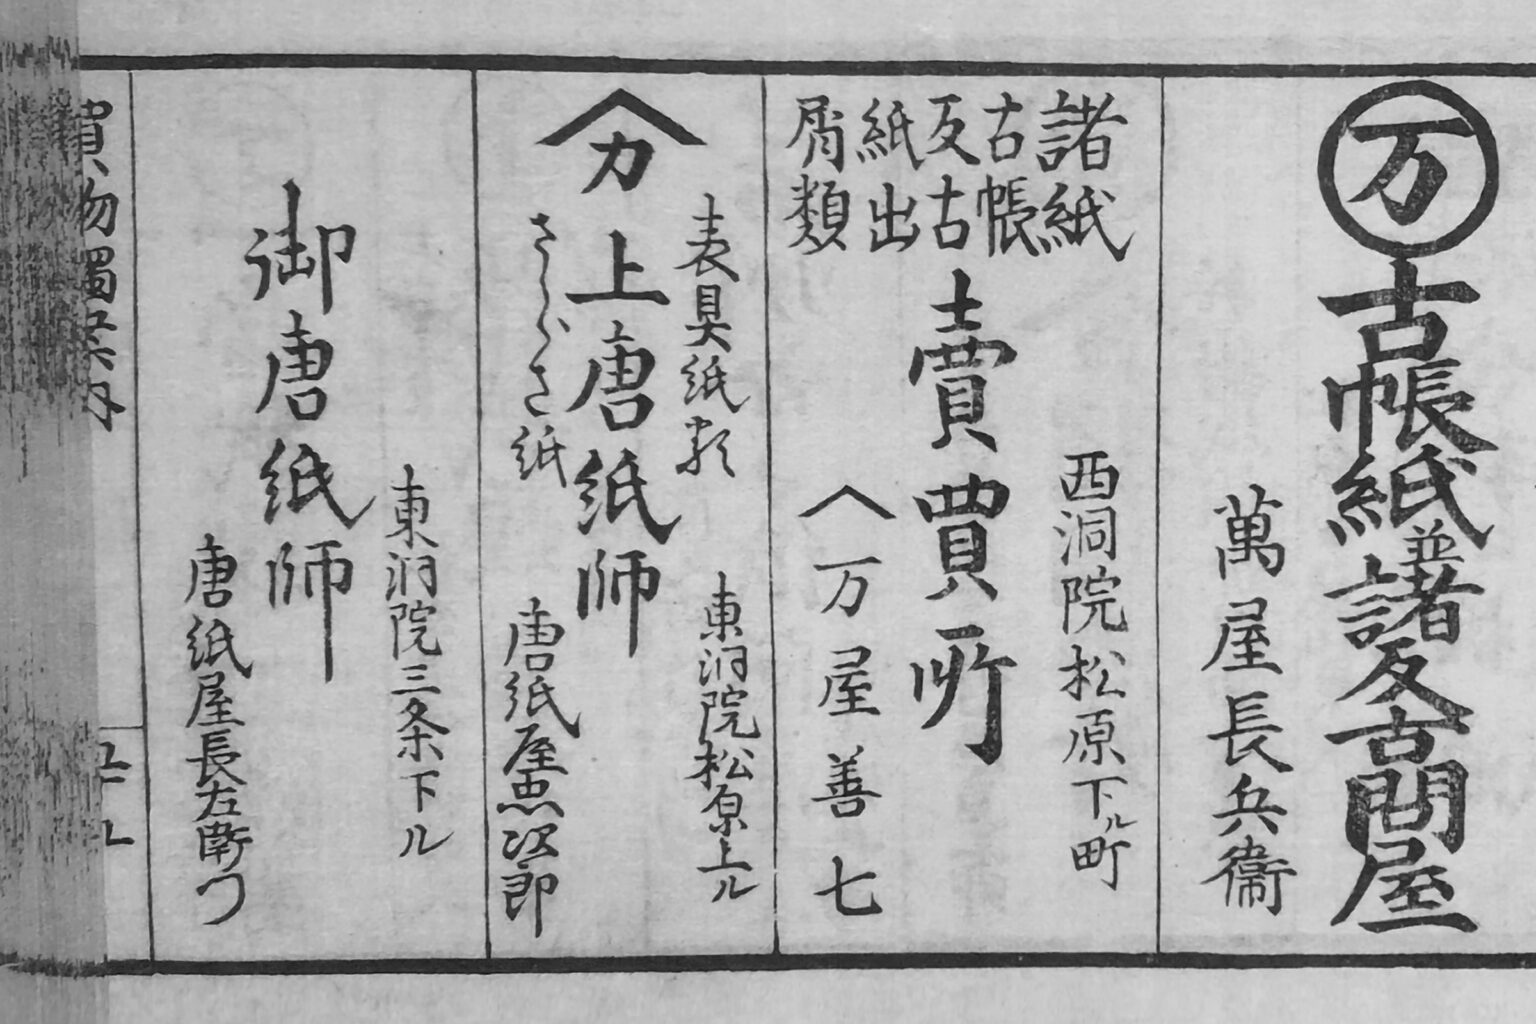 万
古帳紙並諸反古問屋
萬屋長兵衞
諸紙
古帳
反古
紙出
屑類
賣買所
西洞院松原下ル町
万屋善七
表具紙類
カ
上唐紙師
さらさ紙
東洞院松原上ル
唐紙屋忠次郎
御唐紙師
東洞院三条下ル
唐紙屋長左衛門
買物獨案内